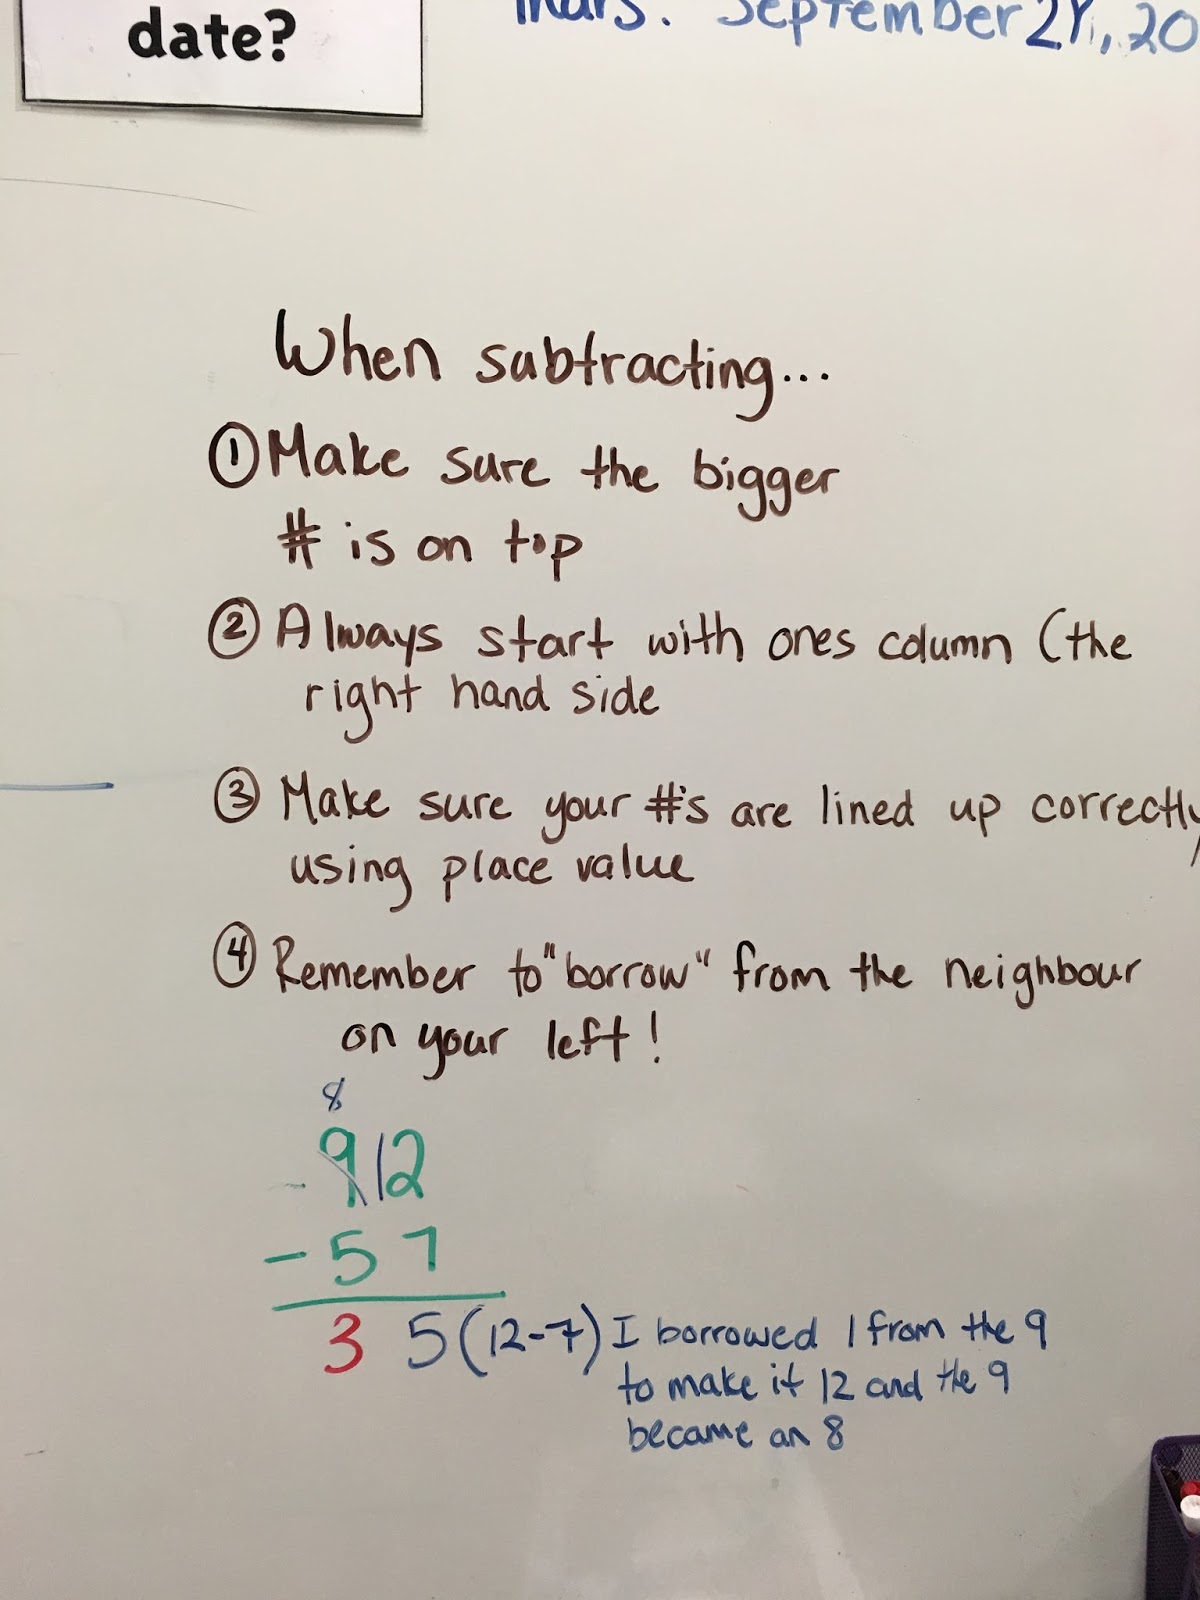 date?
Thurs. September 21, 20
When subtracting...
① Make sure the bigger
# is on top
② Always start with ones column (the
right hand side
③ Make sure your #'s are lined up correctly
using place value
④ Remember to "borrow" from the neighbour
on your left!
8
- 912
- 57
3 5 (12-7) I borrowed 1 from the 9
to make it 12 and the 9
became an 8